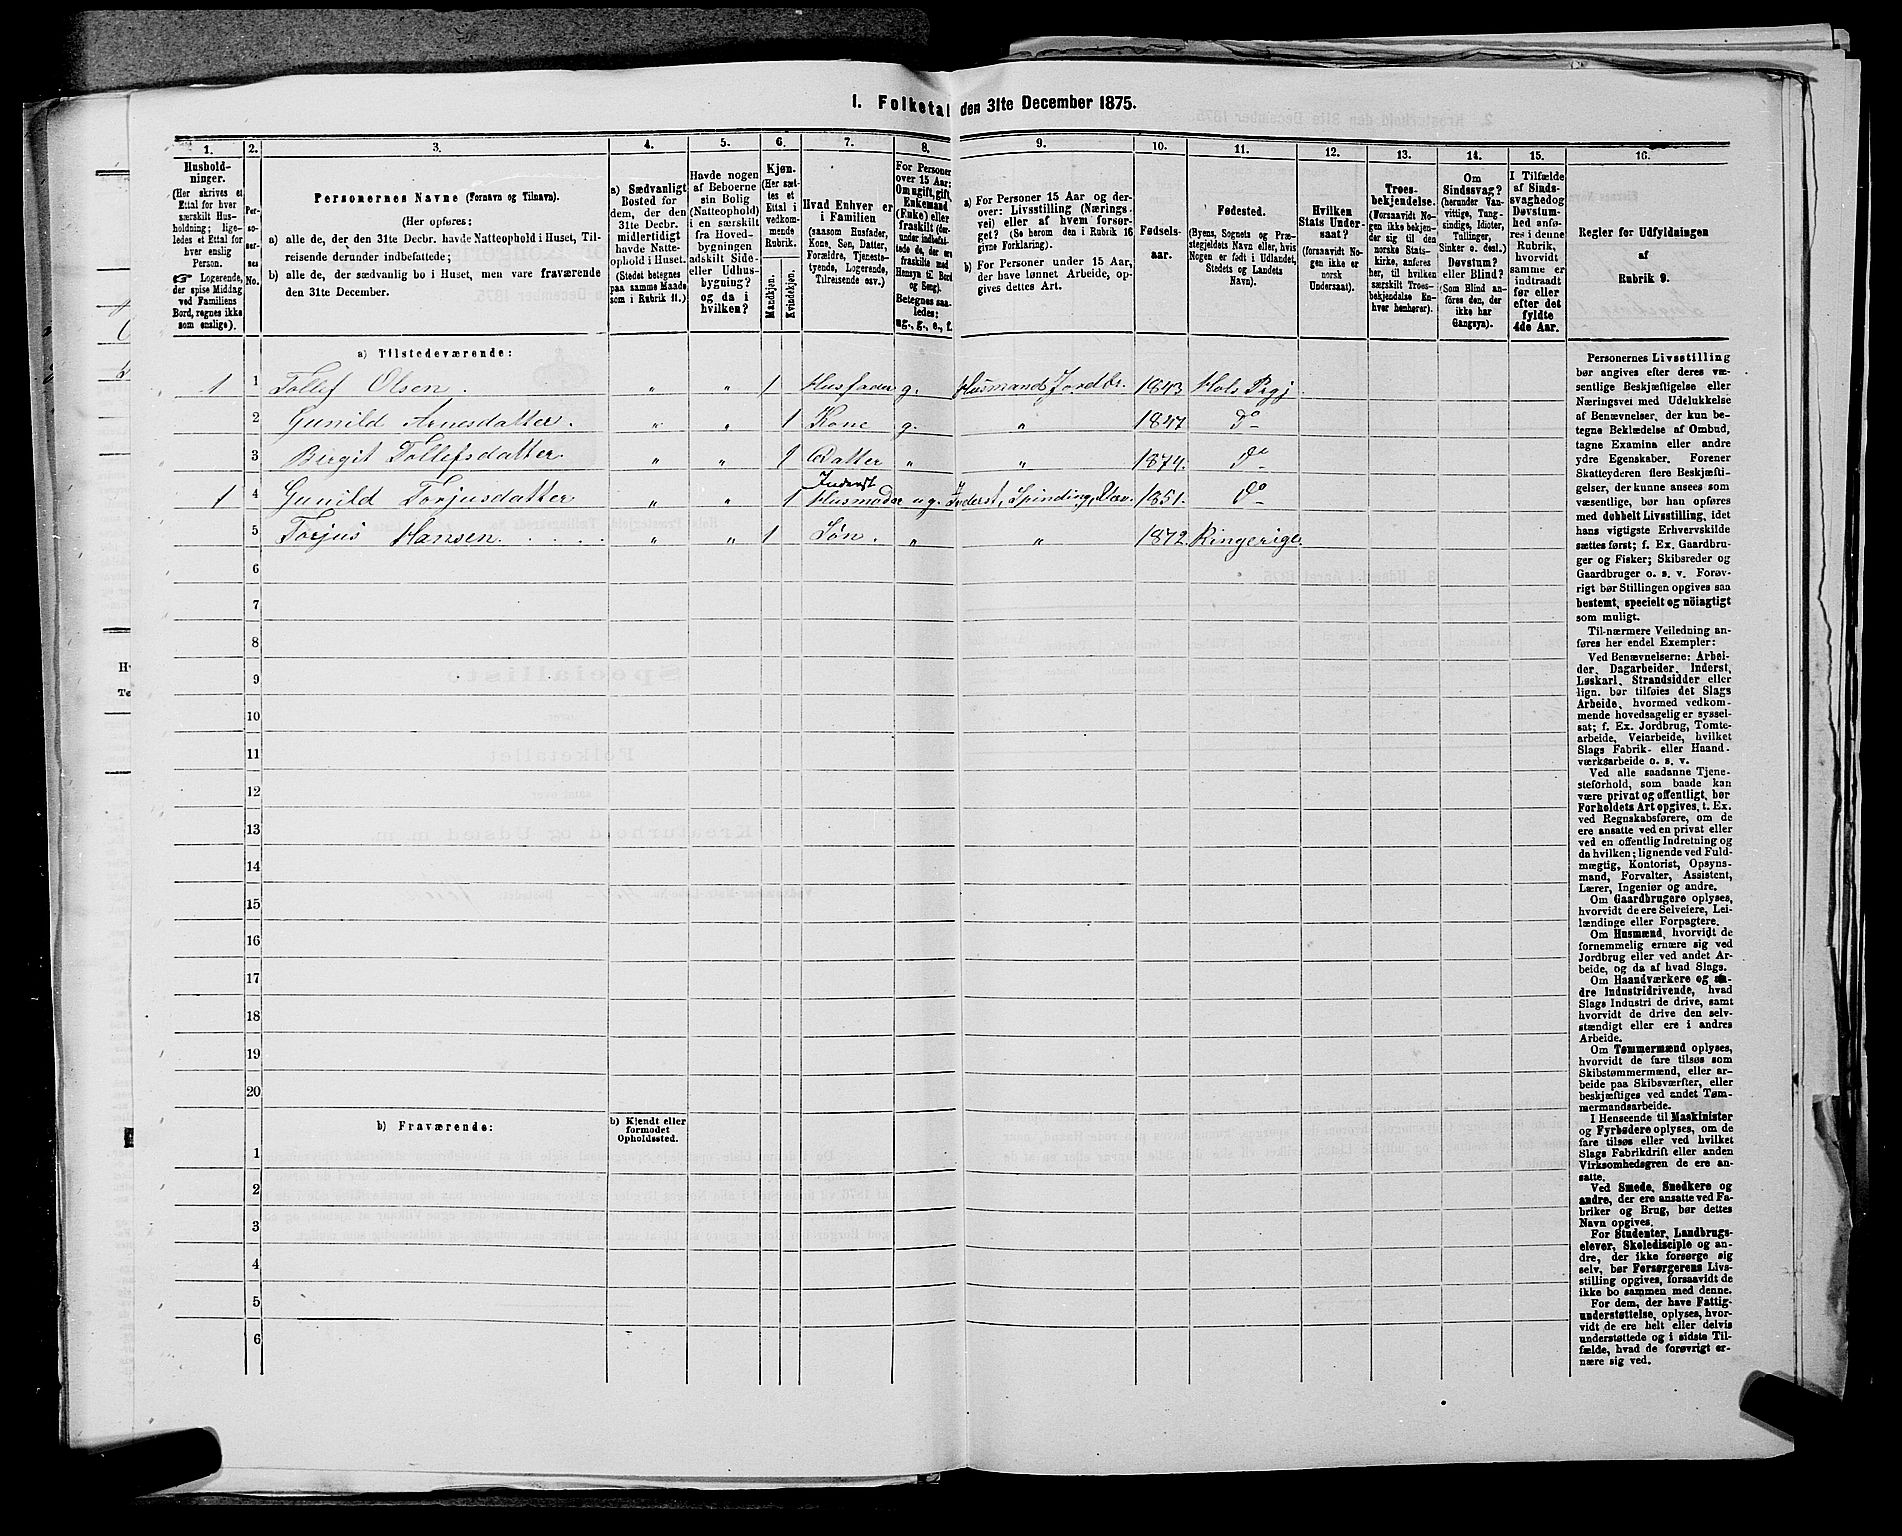 1. Folketal den 31te December 1875.
1. 2. 3. 4. 5. 6. 7. 8. 9. 10. 11. 12. 13. 14. 15. 16.
Hushold-
ninger.
(Her skrives et
Ettal for hver
særskilt Hus-
holdning; lige-
ledes et Ettal for
hver enslig
Person.
☞ Logerende,
der spise Middag
ved Familiens
Bord, regnes ikke
som enslige).
Per-
so-
ner-
nes
No.
Personernes Navne (Fornavn og Tilnavn).
(Her opføres:
a) alle de, der den 31te Decbr. havde Natteophold i Huset, Til-
reisende derunder indbefattede;
b) alle de, der sædvanlig bo i Huset, men vare fraværende
den 31te December.
a) Sædvanligt
Bosted for
dem, der den
31te Decbr.
midlertidigt
havde Natte-
ophold i Huset.
(Stedet betegnes
paa samme Maade
som i Rubrik 11.)
Havde nogen
af Beboerne
sin Bolig
(Natteophold)
i en særskilt
fra Hoved-
bygningen
adskilt Side-
eller Udhus-
bygning?
og da i
hvilken?
Kjøn.
(Her sæt-
tes et
Ettal i
vedkom-
mende
Rubrik.
Mandkjøn.
Kvindekjøn.
Hvad Enhver er
i Familien
(saasom Husfader,
Kone, Søn, Datter,
Forældre, Tjeneste-
tyende, Logerende,
Tilreisende osv.)
For Personer
over 15 Aar:
Om ugift, gift,
Enkemand
(Enke) eller
fraskilt (der-
under indbefat-
tede de, der ere
fraskilte med
Hensyn til Bord
og Seng).
Betegnes saa-
ledes:
ug., g., e., f.
a) For Personer 15 Aar og der-
over: Livsstilling (Nærings-
vei) eller af hvem forsør-
get? (Se herom den i Rubrik 16
givne Forklaring).
b) For Personer under 15 Aar,
der have lønnet Arbeide, op-
gives dettes Art.
Fødsels-
aar.
Fødested.
(Byens, Sognets og Præ-
stegjeldets Navn eller, hvis
Nogen er født i Udlandet,
Stedets og Landets
Navn).
Hvilken
Stats Under-
saat?
(forsaavidt No-
gen ikke er
norsk
Undersaat).
Troes-
bekjendelse.
(Forsaavidt No-
gen ikke bekjen-
der sig til den
norske Stats-
kirke, anføres
her, til hvilken
særskilt Troes-
bekjendelse En-
hver henhører).
Om
Sindssvag?
(herunder Van-
vittige, Tung-
sindige, Idioter,
Tullinger,
Sinker o. desl.)
Døvstum?
eller Blind?
(Som Blind an-
føres den, der
ikke har
Gangsyn).
I Tilfælde
af Sinds-
svaghed og
Døvstum-
hed anfø-
res i denne
Rubrik,
hvorvidt
samme er
indtraadt
før eller
efter det
fyldte
4de Aar.
Regler for Udfyldningen
af
Rubrik 9.
a) Tilstedeværende:
1 1 Tollef Olsen. " " 1 Husfader g. Husmand Jordbr. 1843 Hols Prgj.
2 Gunild Arnesdatter. " " 1 Kone g. " 1847 Do
3 Birgit Tollefsdatter " " 1 Datter " " 1874. Do
1 4 Gunild Torjusdatter " " 1 Inderst Husmoder ug. Inderst, Spinding, Væv. 1851. Do
5 Torjus Hansen. " " 1 Søn. " " 1872. Ringerige
6
7
8
9
10
11
12
13
14
15
16
17
18
19
20
b) Fraværende:
b) Kjendt eller
formodet
Opholdssted.
1
2
3
4
5
6
Personernes Livsstilling
bør angives efter deres væ-
sentlige Beskjæftigelse eller
Næringsvei med Udelukkelse
af Benævnelser, der kun be-
tegne Beklædelse af Ombud,
tagne Examina eller andre
ydre Egenskaber. Forener
Skatteyderen flere Beskjæfti-
gelser, der kunne ansees som
væsentlige, bør han opføres
med dobbelt Livsstilling, idet
hans vigtigste Erhvervskilde
sættes først; f. Ex. Gaardbru-
ger og Fisker; Skibsreder og
Gaardbruger o. s. v. Forøv-
rigt bør Stillingen opgives saa
bestemt, specielt og nöiagtigt
som muligt.
Til-nærmere Veiledning an-
føres her endel Exempler:
Ved Benævnelserne: Arbei-
der, Dagarbeider, Inderst,
Løskarl, Strandsidder eller
lign. bør tilføies det Slags
Arbeide, hvormed vedkom-
mende hovedsagelig er syssel-
sat; f. Ex. Jordbrug, Tomte-
arbeide, Veiarbeide, hvilket
Slags Fabrik- eller Haand-
værksarbeide o. s. v.
Ved alle saadanne Tjene-
steforhold, som baade kan
være privat og offentligt, bør
Forholdets Art opgives, t. Ex.
ved Regnskabsførere, om de
ere ansatte ved en privat eller
ved en offentlig Indretning og
da hvilken; lignende ved Fuld-
mægtig, Kontorist, Opsyns-
mand, Forvalter, Assistent,
Lærer, Ingeniør og andre.
Om Gaardbrugere oplyses,
hvorvidt de ere Selveiere, Lei-
lændinge eller Forpagtere.
Om Husmænd, hvorvidt de
fornemmelig ernære sig ved
Jordbrug eller ved andet Ar-
beide, og da af hvad Slags.
Om Haandværkere og an-
dre Industridrivende, hvad
Slags Industri de drive, samt
hvorvidt de drive den selv-
stændigt eller ere i andres
Arbeide.
Om Tømmermænd oplyses,
hvorvidt de fare tilsøs som
Skibstømmermænd, eller ar-
beide paa Skibsværfter, eller
beskjæftiges ved andet Tøm-
mermandsarbeide.
I Henseende til Maskinister
og Fyrbødere oplyses, om de
fare tilsøs eller ved hvilket
Slags Fabrikdrift eller anden
Virksomhedsgren de ere an-
satte.
Ved Smede, Snedkere og
andre, der ere ansatte ved Fa-
briker og Brug, bør dettes
Navn opgives.
For Studenter, Landbrugs-
elever, Skoledisciple og an-
dre, der ikke forsørge sig
selv, bør Forsørgerens Livs-
stilling opgives, forsaavidt de
ikke bo sammen med denne.
For dem, der have Fattig-
understøttelse, oplyses, hvor-
vidt de ere helt eller delvis
understøttede og i sidste Til-
fælde, hvad de forøvrigt er-
nære sig ved.